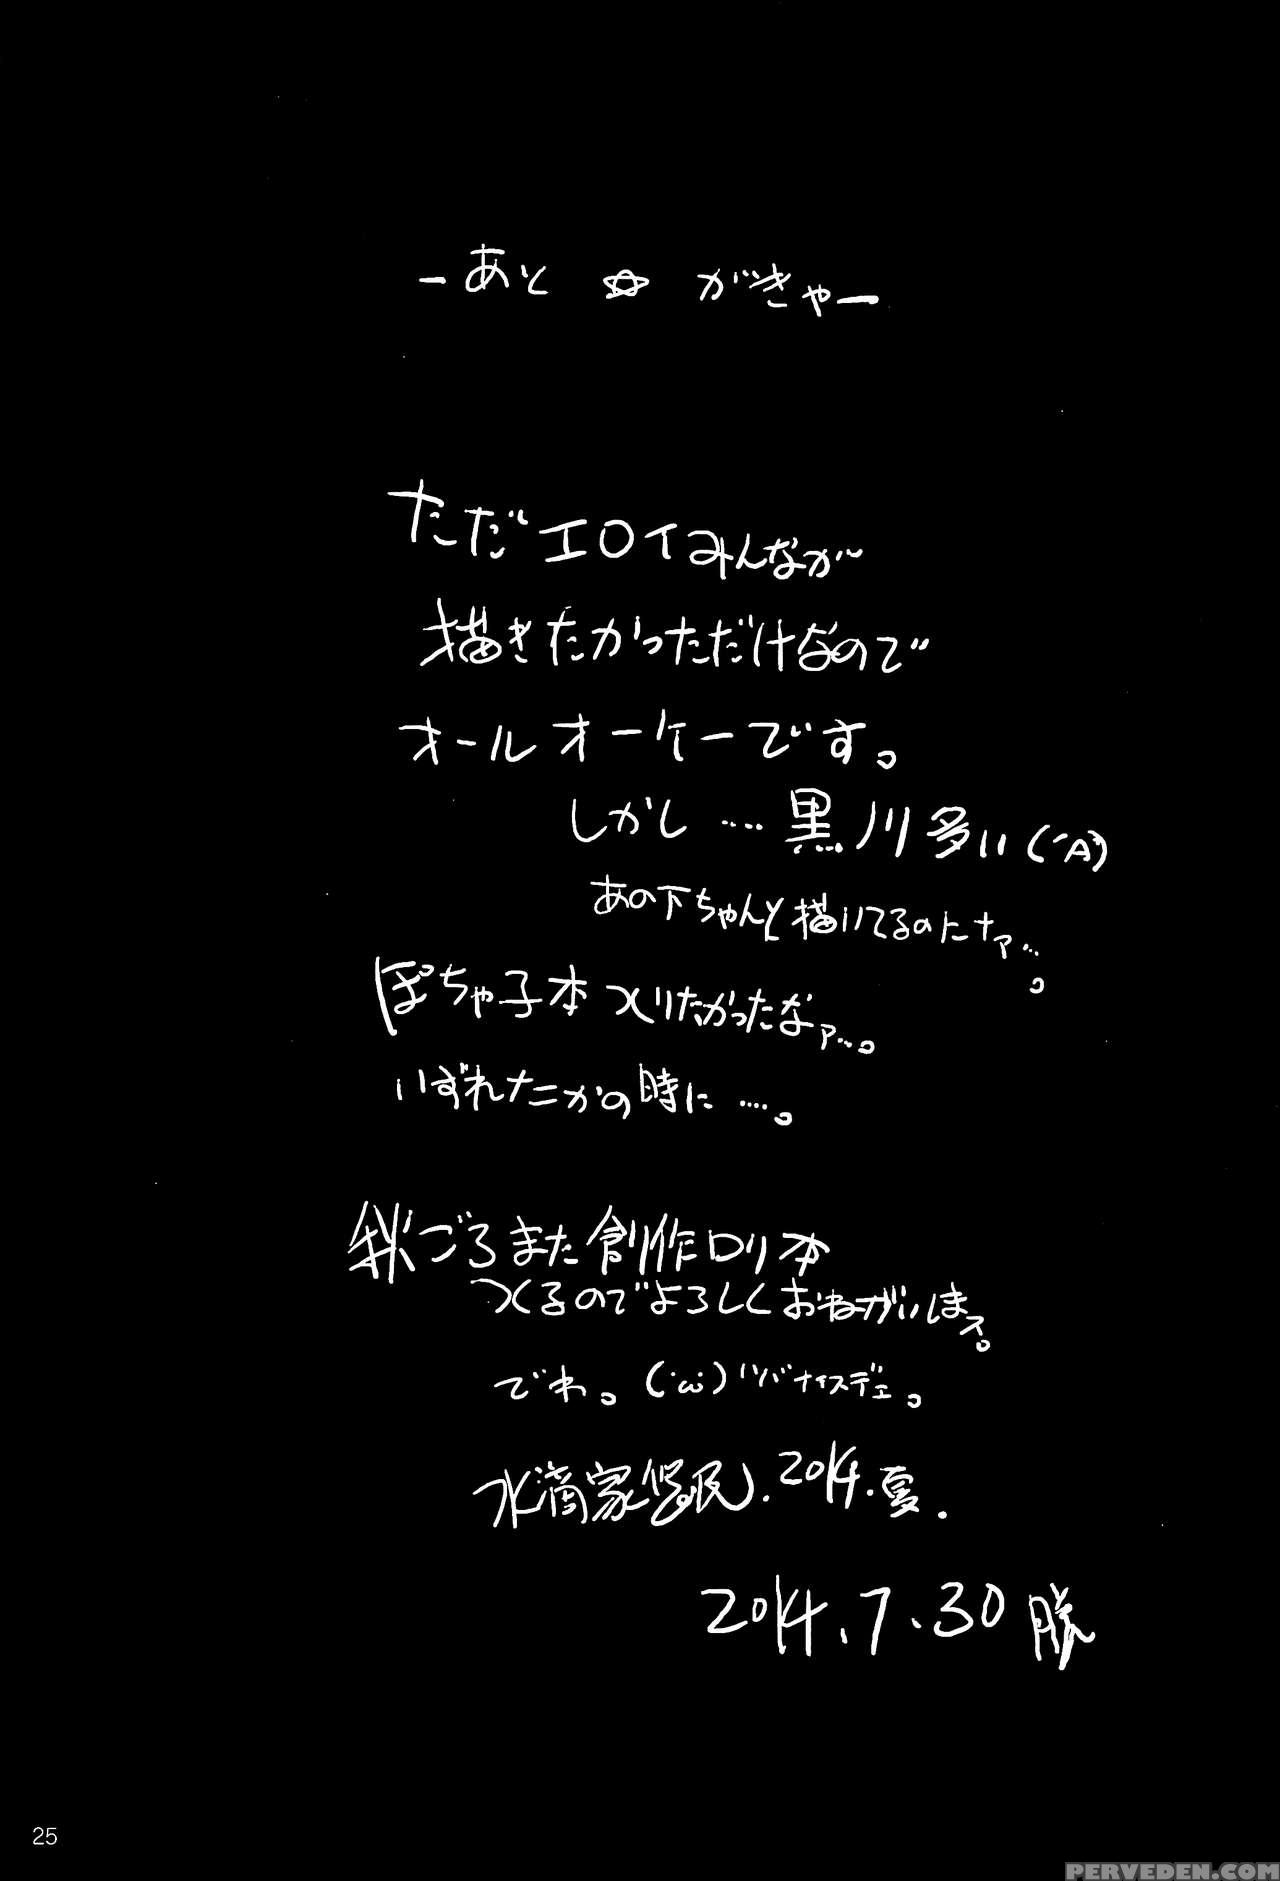 -あと☆がきゃー
ただエロイみんなが
描きたかっただけなので
オールオーケーです。
しかし……黒川多い(´A`)
あの下ちゃんと描いてるのにナァ…。
ぽちゃ子本つくりたかったなァ…。
いずれナニかの時に……。
秋ごろまた創作ロリ本
つくるのでよろしくおねがいしまス。
でわ。(´ω`)ツバナイスデェ。
水滴家 2014.夏.
2014.7.30 勝
25
PERVEDEN.COM